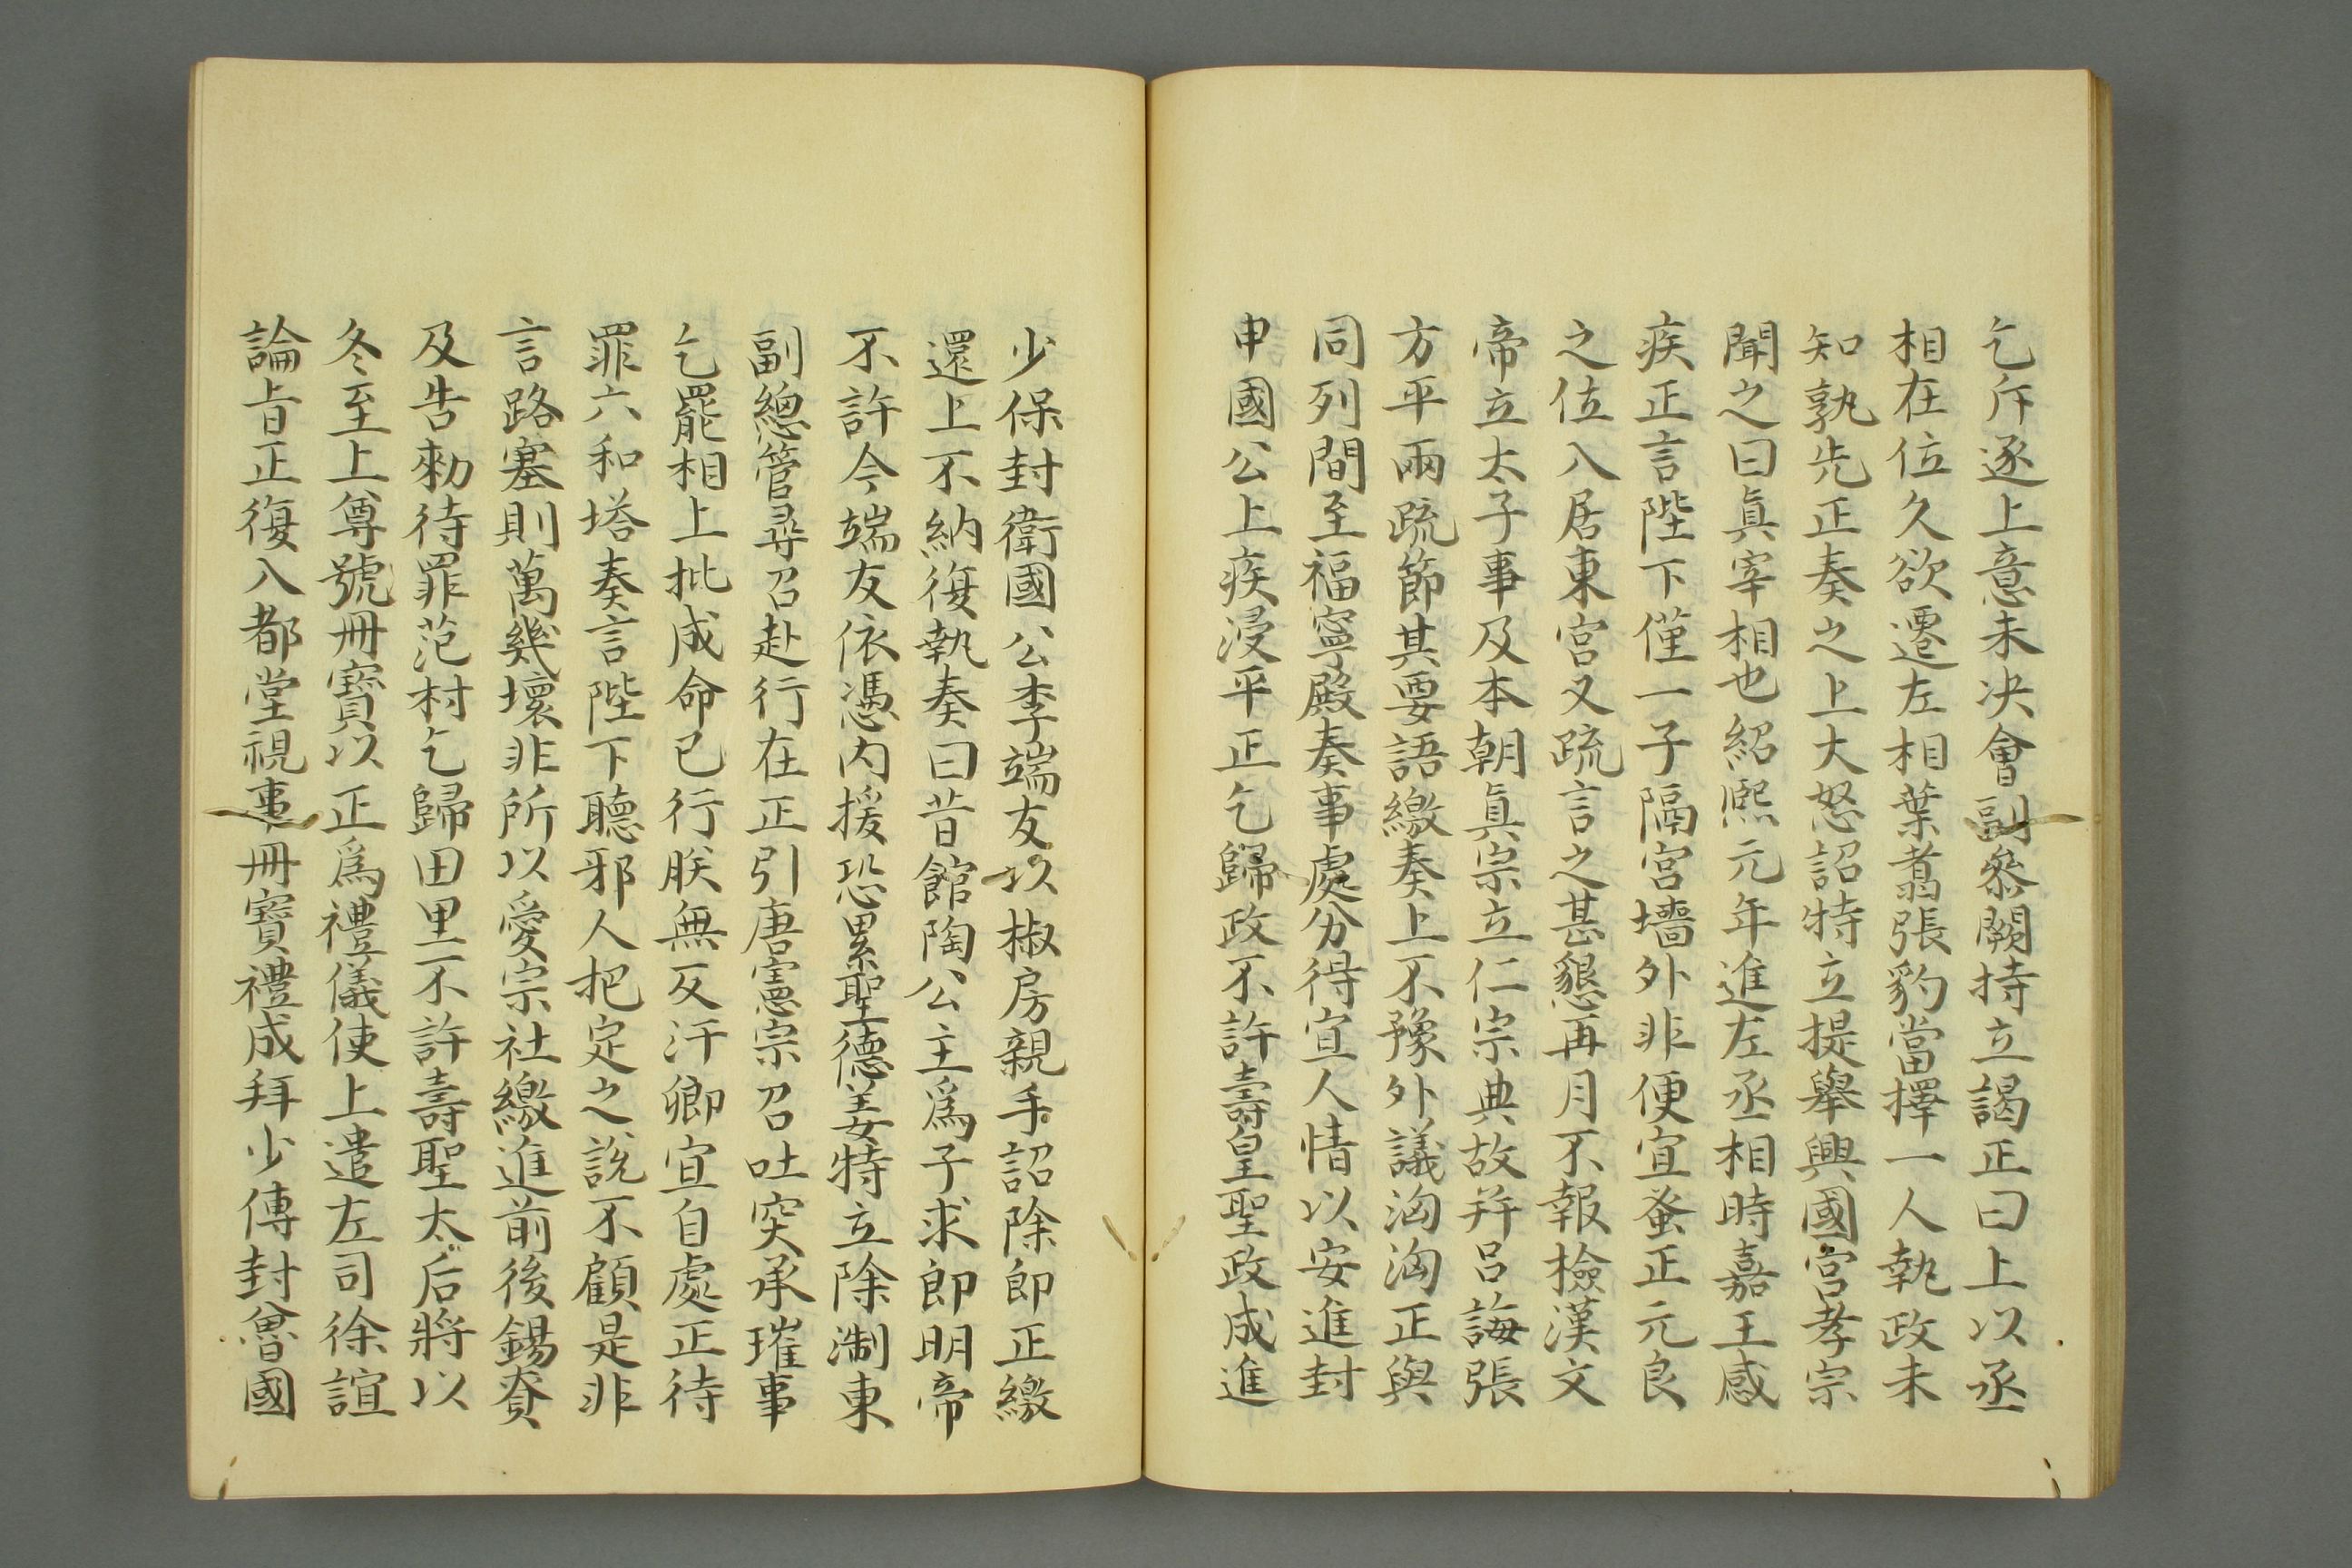 乞斥逐上意未决會副叅闕持立謁正曰上以丞
相在位久欲遷左相葉翥張豹當擇一人執政未
知孰先正奏之上大怒詔特立提舉興國宫孝宗
聞之曰眞宰相也紹熙元年進左丞相時嘉王感
疾正言陛下僅一子隔宫墻外非便宜蚤正元良
之位入居東宫又疏言之甚懇再月不報檢漢文
帝立太子事及本朝眞宗立仁宗典故并呂誨張
方平兩疏節其要語繳奏上不豫外議洶洶正與
同列間至福寧殿奏事處分得宜人情以安進封
申國公上疾浸平正乞歸政不許壽皇聖政成進
少保封衛國公李端友以椒房親手詔除郎正繳
還上不納復執奏曰昔館陶公主爲子求郎明帝
不許今端友依憑内援恐累聖德姜特立除淛東
副總管尋召赴行在正引唐憲宗召吐突承璀事
乞罷相上批成命已行朕無反汗卿宜自處正待
罪六和塔奏言陛下聽邪人把定之說不顧是非
言路塞則萬幾壞非所以愛宗社繳進前後錫賚
及告勑待罪范村乞歸田里不許壽聖太后將以
冬至上尊號冊寶以正爲禮儀使上遣左司徐誼
諭旨正復入都堂視事冊寶禮成拜少傅封魯國